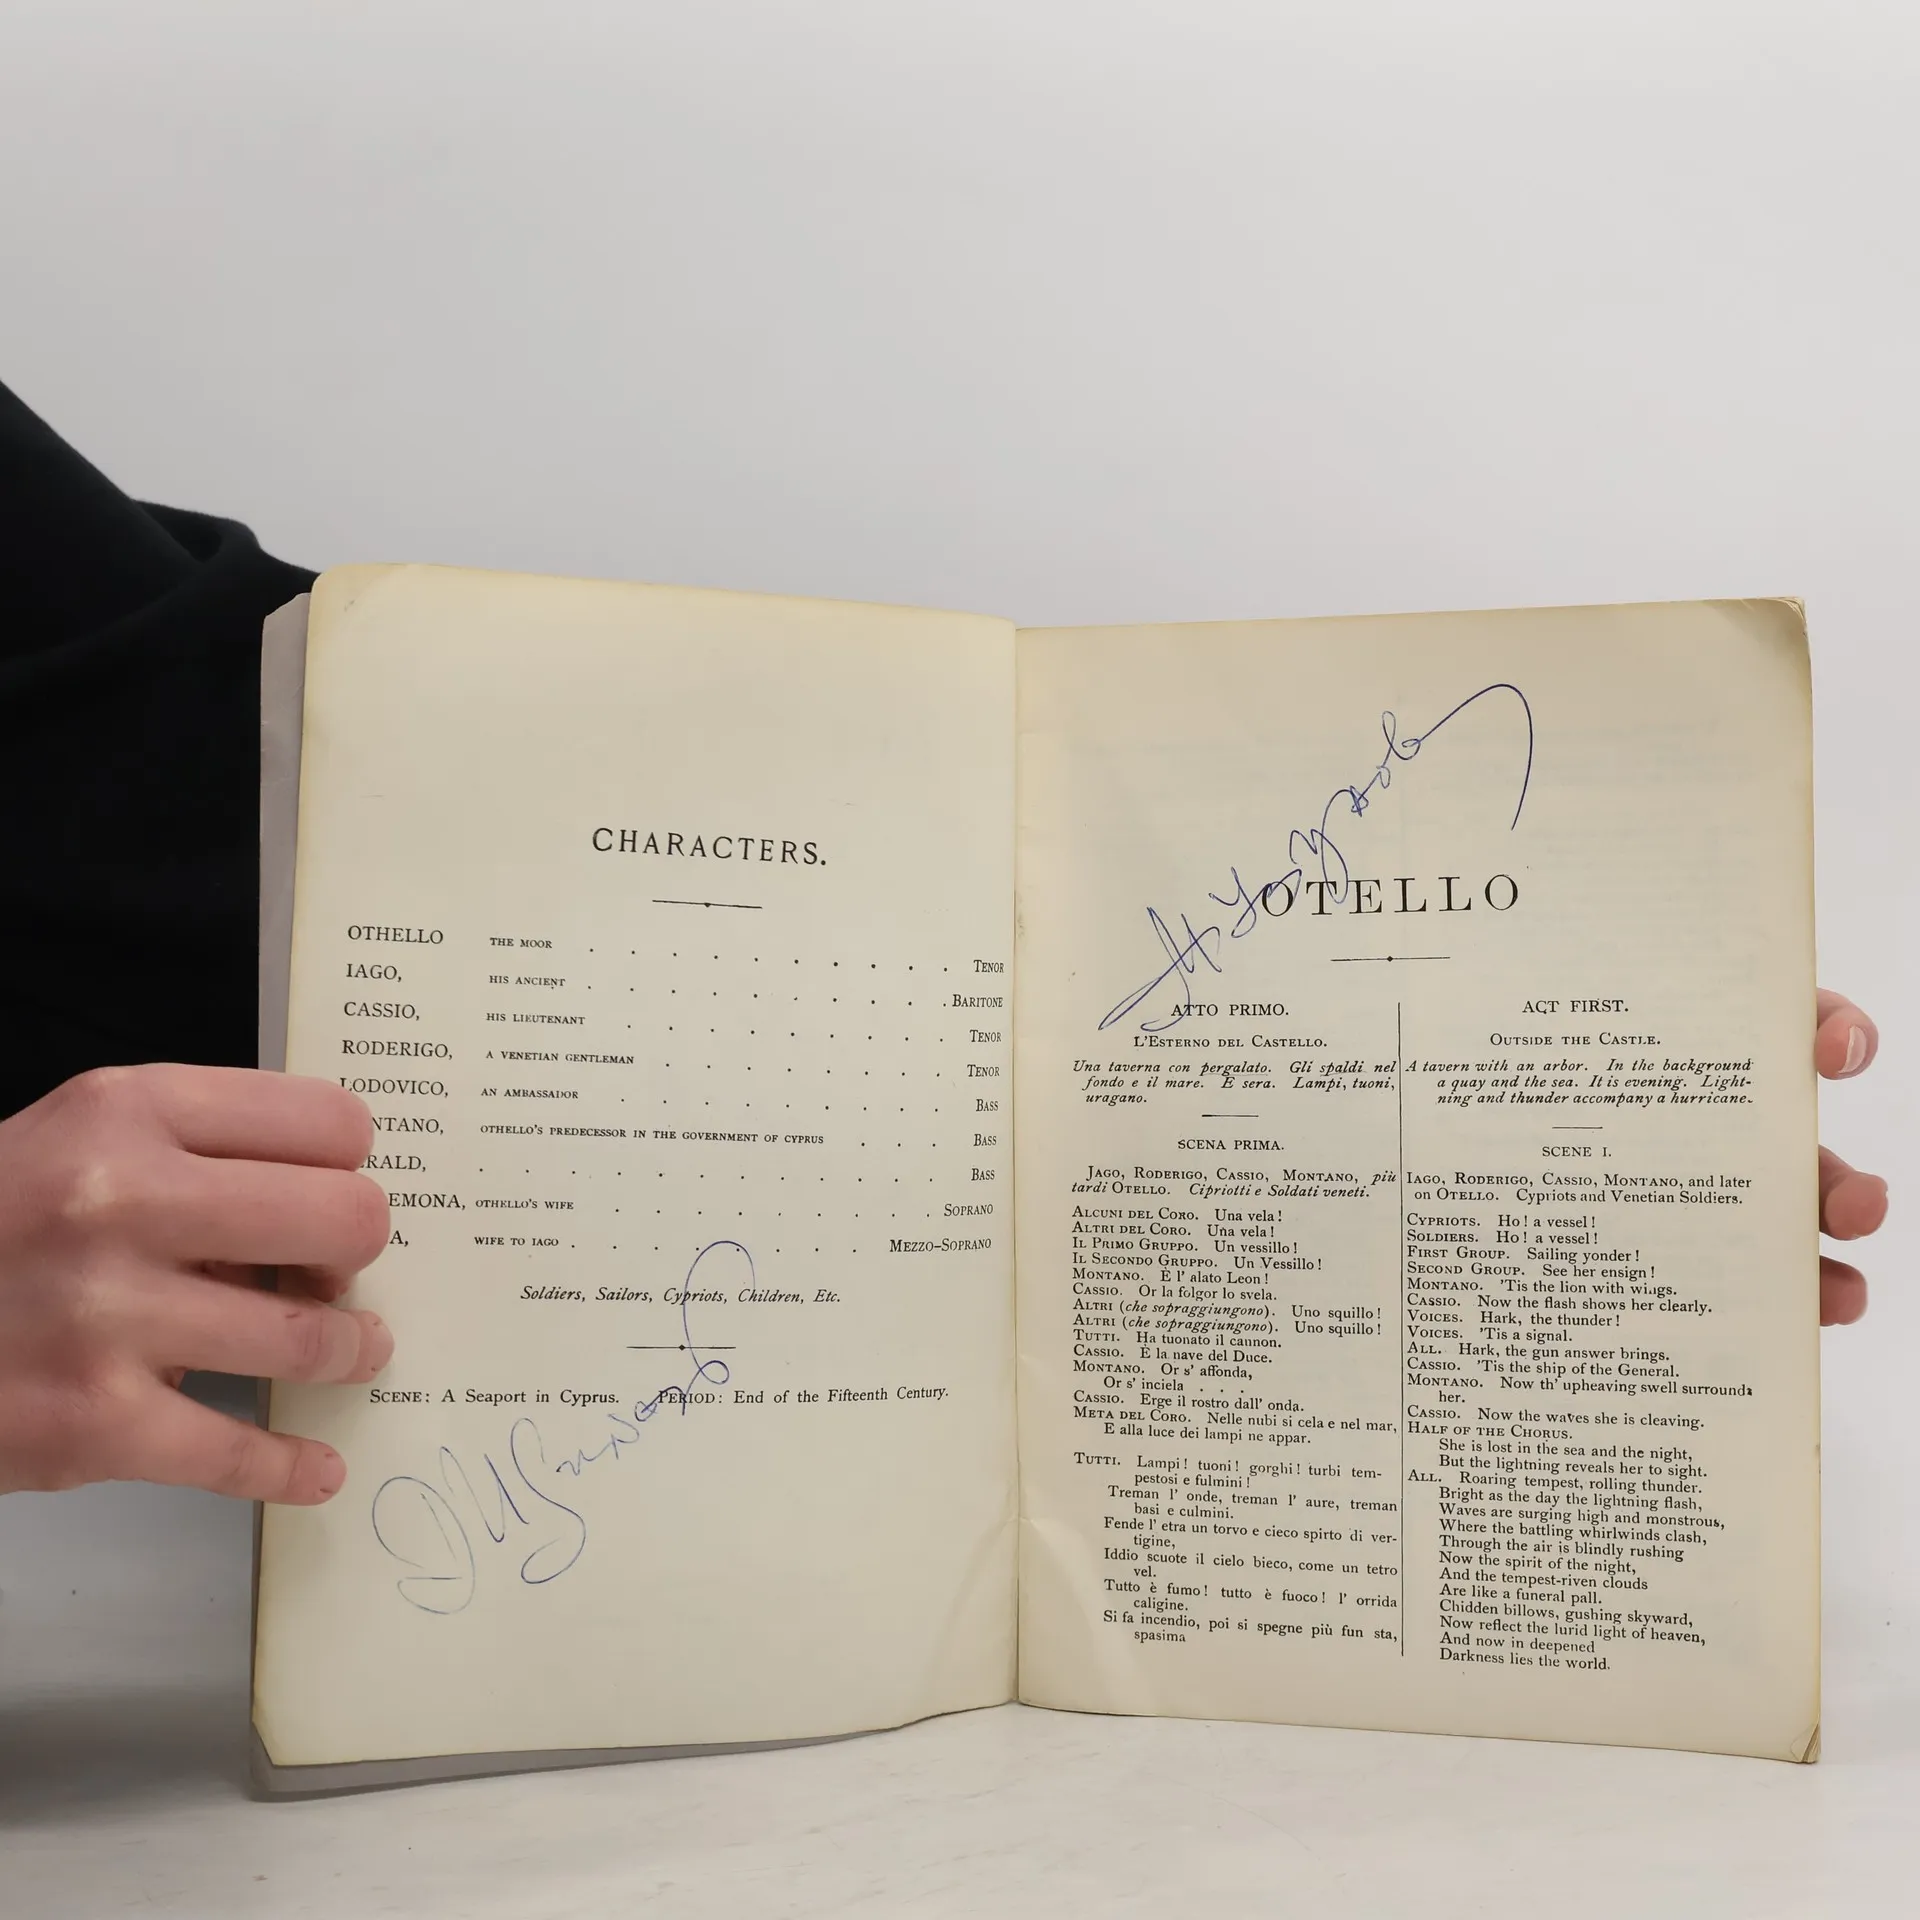 CHARACTERS.
OTHELLO THE MOOR . . . . . . . . . . TENOR
IAGO, HIS ANCIENT . . . . . . . . . . BARITONE
CASSIO, HIS LIEUTENANT . . . . . . . . . TENOR
RODERIGO, A VENETIAN GENTLEMAN . . . . . . . . TENOR
LODOVICO, AN AMBASSADOR . . . . . . . . . BASS
NTANO, OTHELLO'S PREDECESSOR IN THE GOVERNMENT OF CYPRUS . . . BASS
RALD, . . . . . . . . . . . BASS
EMONA, OTHELLO'S WIFE . . . . . . . . . SOPRANO
A, WIFE TO IAGO . . . . . . . . MEZZO-SOPRANO
Soldiers, Sailors, Cypriots, Children, Etc.
SCENE: A Seaport in Cyprus. PERIOD: End of the Fifteenth Century.
OTELLO
ATTO PRIMO.
L'ESTERNO DEL CASTELLO.
Una taverna con pergalato. Gli spaldi nel
fondo e il mare. E sera. Lampi, tuoni,
uragano.
SCENA PRIMA.
JAGO, RODERIGO, CASSIO, MONTANO, più
tardi OTELLO. Cipriotti e Soldati veneti.
ALCUNI DEL CORO. Una vela!
ALTRI DEL CORO. Una vela!
IL PRIMO GRUPPO. Un vessillo!
IL SECONDO GRUPPO. Un Vessillo!
MONTANO. È l' alato Leon!
CASSIO. Or la folgor lo svela.
ALTRI (che sopraggiungono). Uno squillo!
ALTRI (che sopraggiungono). Uno squillo!
TUTTI. Ha tuonato il cannon.
CASSIO. È la nave del Duce.
MONTANO. Or s' affonda,
Or s' inciela . . .
CASSIO. Erge il rostro dall' onda.
META DEL CORO. Nelle nubi si cela e nel mar,
E alla luce dei lampi ne appar.
TUTTI. Lampi! tuoni! gorghi! turbi tem-
pestosi e fulmini!
Treman l' onde, treman l' aure, treman
basi e culmini.
Fende l' etra un torvo e cieco spirto di ver-
tigine,
Iddio scuote il cielo bieco, come un tetro
vel.
Tutto è fumo! tutto è fuoco! l' orrida
caligine.
Si fa incendio, poi si spegne più fun sta,
spasima
ACT FIRST.
OUTSIDE THE CASTLE.
A tavern with an arbor. In the background
a quay and the sea. It is evening. Light-
ning and thunder accompany a hurricane.
SCENE I.
IAGO, RODERIGO, CASSIO, MONTANO, and later
on OTELLO. Cypriots and Venetian Soldiers.
CYPRIOTS. Ho! a vessel!
SOLDIERS. Ho! a vessel!
FIRST GROUP. Sailing yonder!
SECOND GROUP. See her ensign!
MONTANO. 'Tis the lion with wings.
CASSIO. Now the flash shows her clearly.
VOICES. Hark, the thunder!
VOICES. 'Tis a signal.
ALL. Hark, the gun answer brings.
CASSIO. 'Tis the ship of the General.
MONTANO. Now th' upheaving swell surrounds
her.
CASSIO. Now the waves she is cleaving.
HALF OF THE CHORUS.
She is lost in the sea and the night,
But the lightning reveals her to sight.
ALL. Roaring tempest, rolling thunder.
Bright as the day the lightning flash,
Waves are surging high and monstrous,
Where the battling whirlwinds clash,
Through the air is blindly rushing
Now the spirit of the night,
And the tempest-riven clouds
Are like a funeral pall.
Chidden billows, gushing skyward,
Now reflect the lurid light of heaven,
And now in deepened
Darkness lies the world.